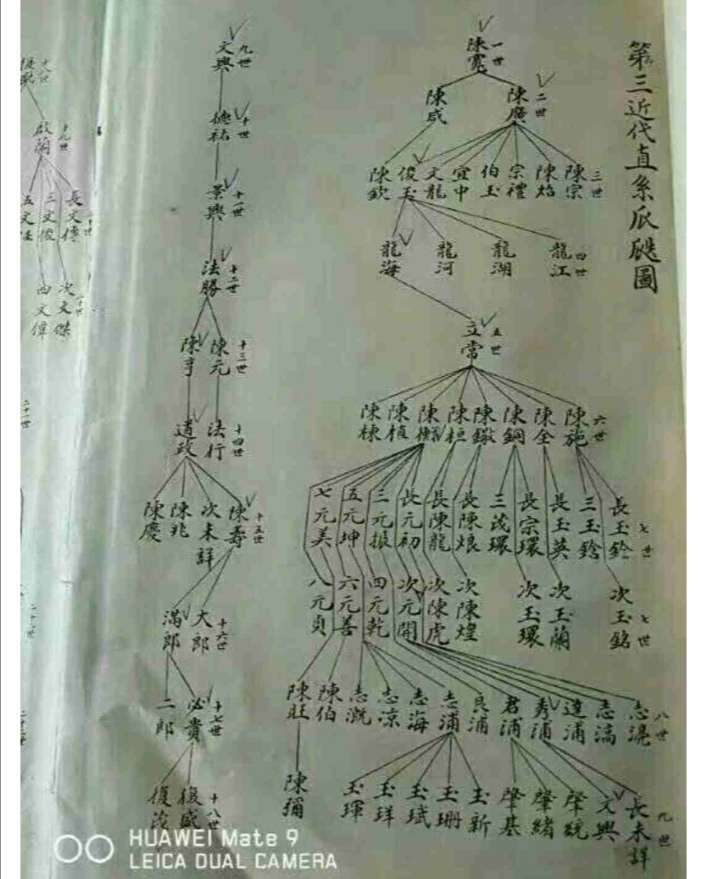 第三近代直系瓜瓞圖
一世
陳寬
二世
陳廣
陳咸
三世
陳宗
陳焰
宗禮
伯玉
宜中
文龍
俊玉
陳欽
四世
龍江
龍湖
龍河
龍海
五世
立常
六世
陳施
陳全
陳鋼
陳鏾
陳桓
陳楷
陳楨
陳棟
七世
長玉鈴
三玉鎗
長玉英
長宗環
三茂環
長陳烺
長陳龍
長元初
三元振
五元坤
七元美
七世
次玉銘
次玉蘭
次玉環
次陳煌
次陳虎
次元開
四元乾
六元善
八元貞
八世
志濸
達浦
秀浦
君浦
良浦
志浦
志海
志凉
志溉
陳伯
陳旺
九世
長未詳
文興
肇統
肇緒
肇基
玉新
玉珊
玉珷
玉珜
玉琿
陳彌
九世
文興
十世
德祐
十一世
景興
十二世
法勝
十三世
陳元
陳亨
十四世
法行
道政
十五世
陳壽
次未詳
陳兆
陳慶
十六世
大郎
滿郎
十七世
必貴
二郎
十八世
復盛
十九世
啟蘭
長文傳
三文俊
次文傑
四文偉
二十一世
HUAWEI Mate 9
LEICA DUAL CAMERA